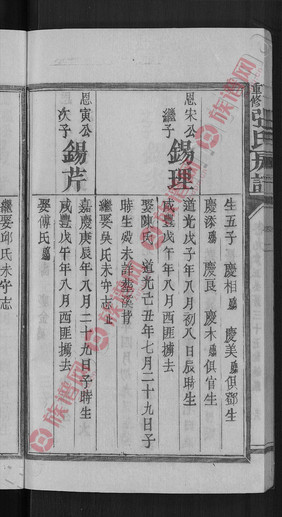 重修張氏族譜
生五子 慶相 慶美俱鄧生
慶添 慶良 慶木俱官生
恩宋公
繼子
錫理
道光戊子年八月初八日辰時生
咸豐戊午年八月西匪擄去
娶陳氏 道光己丑年七月二十九日子
時生歿未詳葬溪背
繼娶吳氏未守志
恩寅公
次子
錫芹
嘉慶庚辰年八月二十九日子時生
咸豐戊午年八月西匪擄去
娶傅氏
繼娶邱氏未守志
族譜网